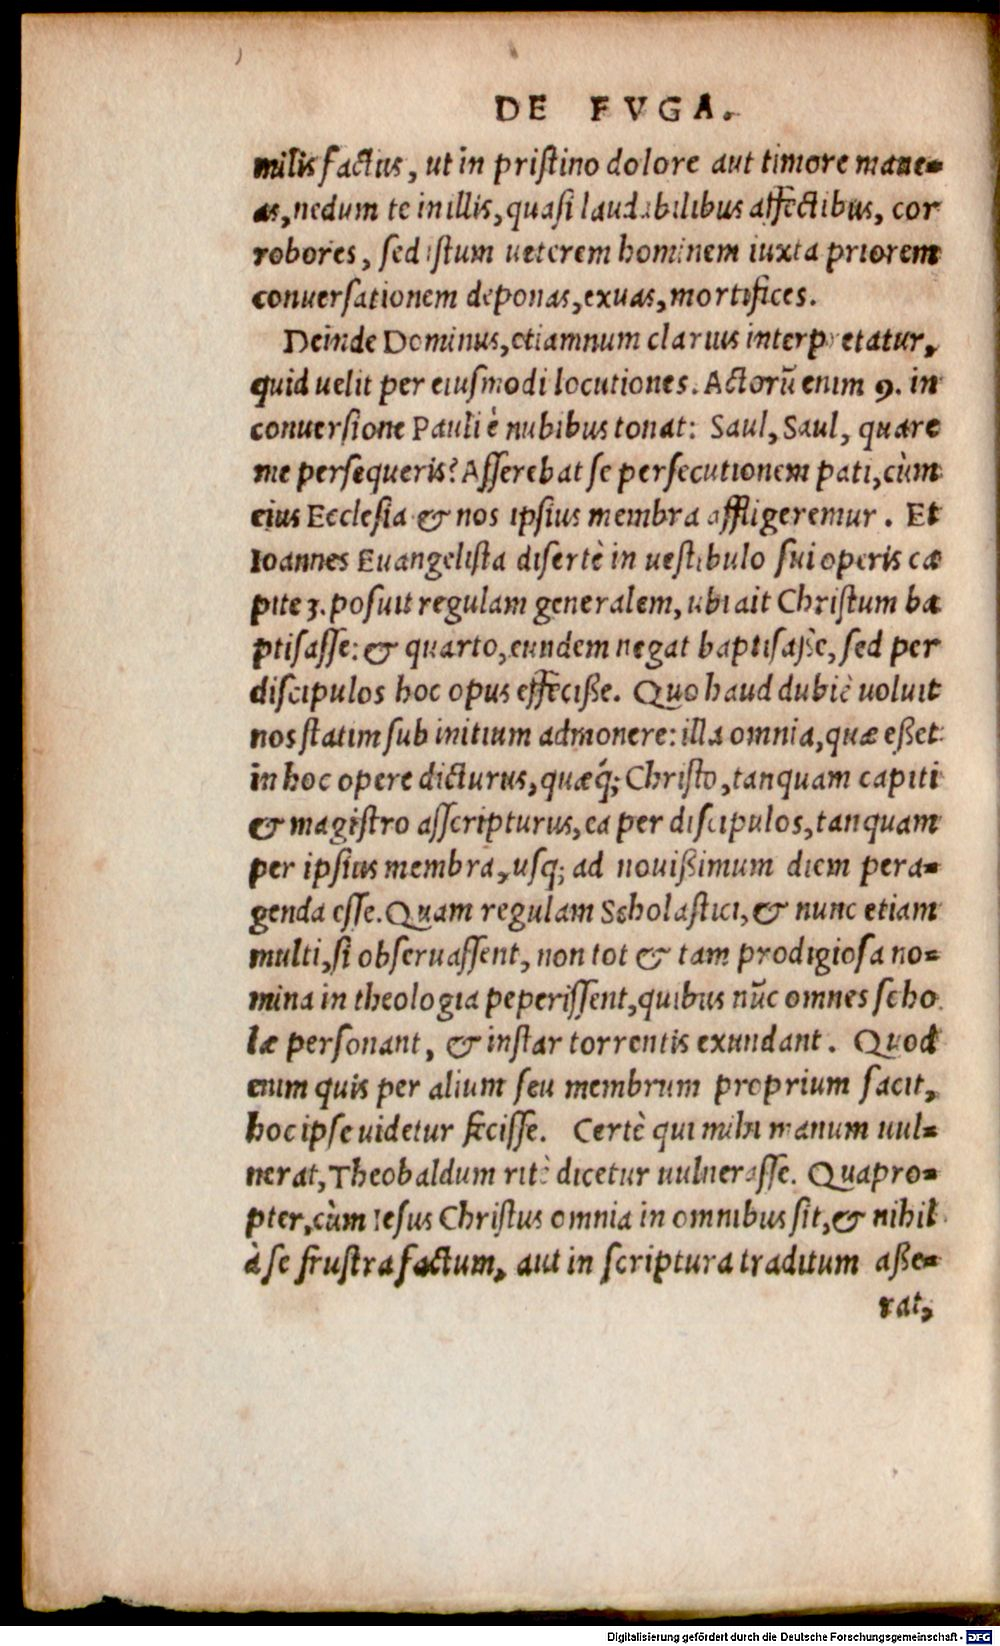 DE FVGA.
milis factus, ut in pristino dolore aut timore mane-
as, nedum te in illis, quasi laudabilibus affectibus, cor
robores, sed istum ueterem hominem iuxta priorem
conuersationem deponas, exuas, mortifices.
Deinde Dominus, etiamnum clarius interpretatur,
quid uelit per eiusmodi locutiones. Actorũ enim 9. in
conuersione Pauli è nubibus tonat: Saul, Saul, quare
me persequeris? Asserebat se persecutionem pati, cùm
eius Ecclesia & nos ipsius membra affligeremur. Et
Ioannes Euangelista disertè in uestibulo sui operis ca
pite 3. posuit regulam generalem, ubi ait Christum ba
ptisasse: & quarto, eundem negat baptisaße, sed per
discipulos hoc opus effeciße. Quo haud dubiè uoluit
nos statim sub initium admonere: illa omnia, quæ eßet
in hoc opere dicturus, quæq́; Christo, tanquam capiti
& magistro asscripturus, ea per discipulos, tanquam
per ipsius membra, usq; ad nouißimum diem pera-
genda esse. Quam regulam Scholastici, & nunc etiam
multi, si obseruassent, non tot & tam prodigiosa no-
mina in theologia peperissent, quibus nũc omnes scho
læ personant, & instar torrentis exundant. Quod
enim quis per alium seu membrum proprium facit,
hoc ipse uidetur fecisse. Certè qui mihi manum uul-
nerat, Theobaldum ritè dicetur uulnerasse. Quapro-
pter, cùm Iesus Christus omnia in omnibus sit, & nihil
à se frustra factum, aut in scriptura traditum aße-
rat,
Digitalisierung gefördert durch die Deutsche Forschungsgemeinschaft - DFG